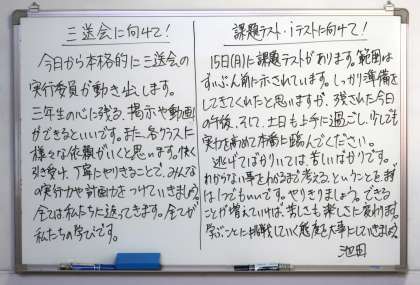 三送会に向けて!
今日から本格的に三送会の
実行委員が動き出します。
三年生の心に残る、掲示や動画
ができるといいです。また、各クラスに
様々な依頼がいくと思います。快く
引き受け、丁寧にやりきることで、みんな
の実行力や計画力をつけていきましょう。
全ては私たちに返ってきます。全てが
私たちの学びです。
課題テスト・iテストに向けて!
15日(月)に課題テストがあります。範囲は
ずいぶん前に示されています。しっかり準備を
してきてくれたと思いますが、残された今日
の午後、そして、土日も上手に過ごし、少しでも
実力を高めて本番に臨んでください。
逃げてばかりいては、苦しいばかりです。
わからない事をわかるまで考えるということを、まず
は1つでもいいです。やりきりましょう。できる
ことが増えていけば、苦しさも楽しさに変わります。
学ぶことに挑戦していく態度を大事にしていきましょう。
池田